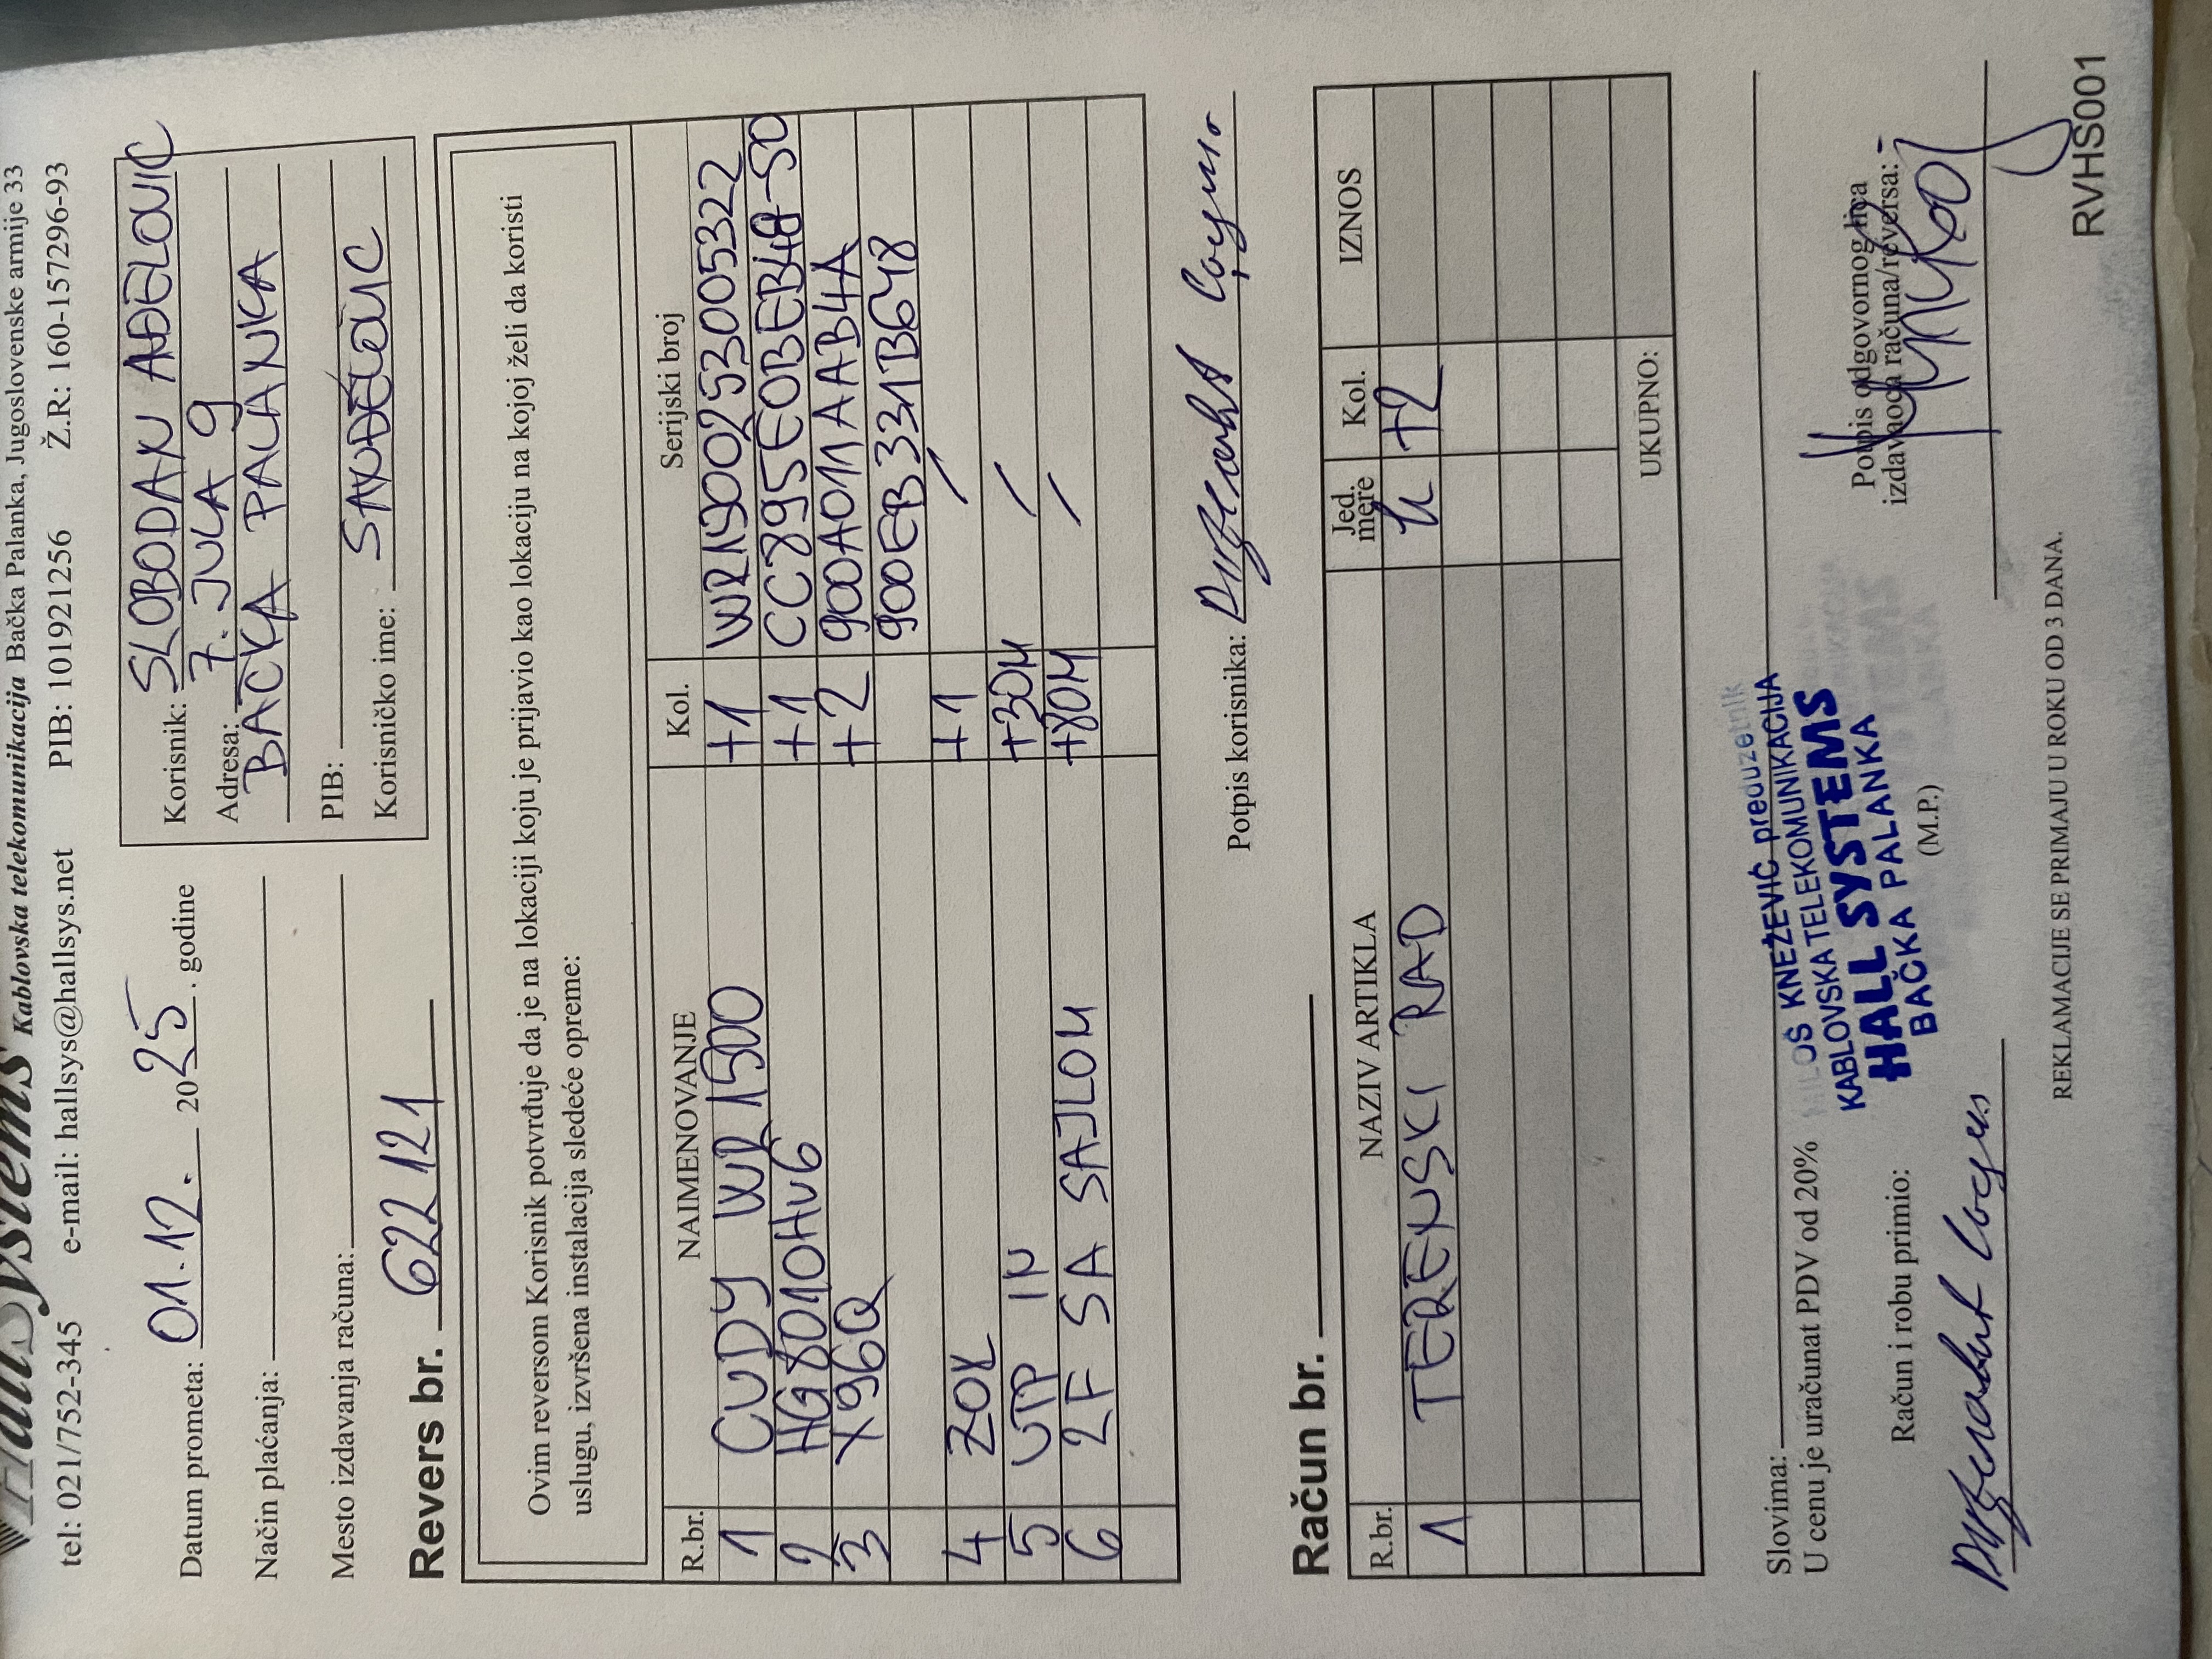 HallSystems Kablovska telekomunikacija Bačka Palanka, Jugoslovenske armije 33
tel: 021/752-345 e-mail: hallsys@hallsys.net PIB: 101921256 Ž.R: 160-157296-93
Datum prometa: 01.12. 2025. godine
Način plaćanja:
Mesto izdavanja računa:
Korisnik: SLOBODAN AĐELOVIC
Adresa: 7. JULA 9
BAČKA PALANKA
PIB:
Korisničko ime:
Revers br. 622 121
Ovim reversom Korisnik potvrđuje da je na lokaciji koju je prijavio kao lokaciju na kojoj želi da koristi
uslugu, izvršena instalacija sledeće opreme:
R.br. NAIMENOVANJE Kol. Serijski broj
1 CUDY WR 1500 +1 WR1500253005322
2 HG8010Hv6 +1
3 X96Q +2 900A011AAB4A
900EB331B648
4 ZOK +1 /
5 UTP IN +30M /
6 2F SA SAJLOM +80M /
Potpis korisnika:
Račun br.
R.br. NAZIV ARTIKLA Jed. mere Kol. IZNOS
1 TERENSKI RAD h +2
UKUPNO:
Slovima:
U cenu je uračunat PDV od 20%
MILOŠ KNEŽEVIĆ preduzetnik
KABLOVSKA TELEKOMUNIKACIJA
HALL SYSTEMS
BAČKA PALANKA
(M.P.)
Račun i robu primio:
Potpis odgovornog lica
izdavaoca računa/reversa:
REKLAMACIJE SE PRIMAJU U ROKU OD 3 DANA.
RVHS001